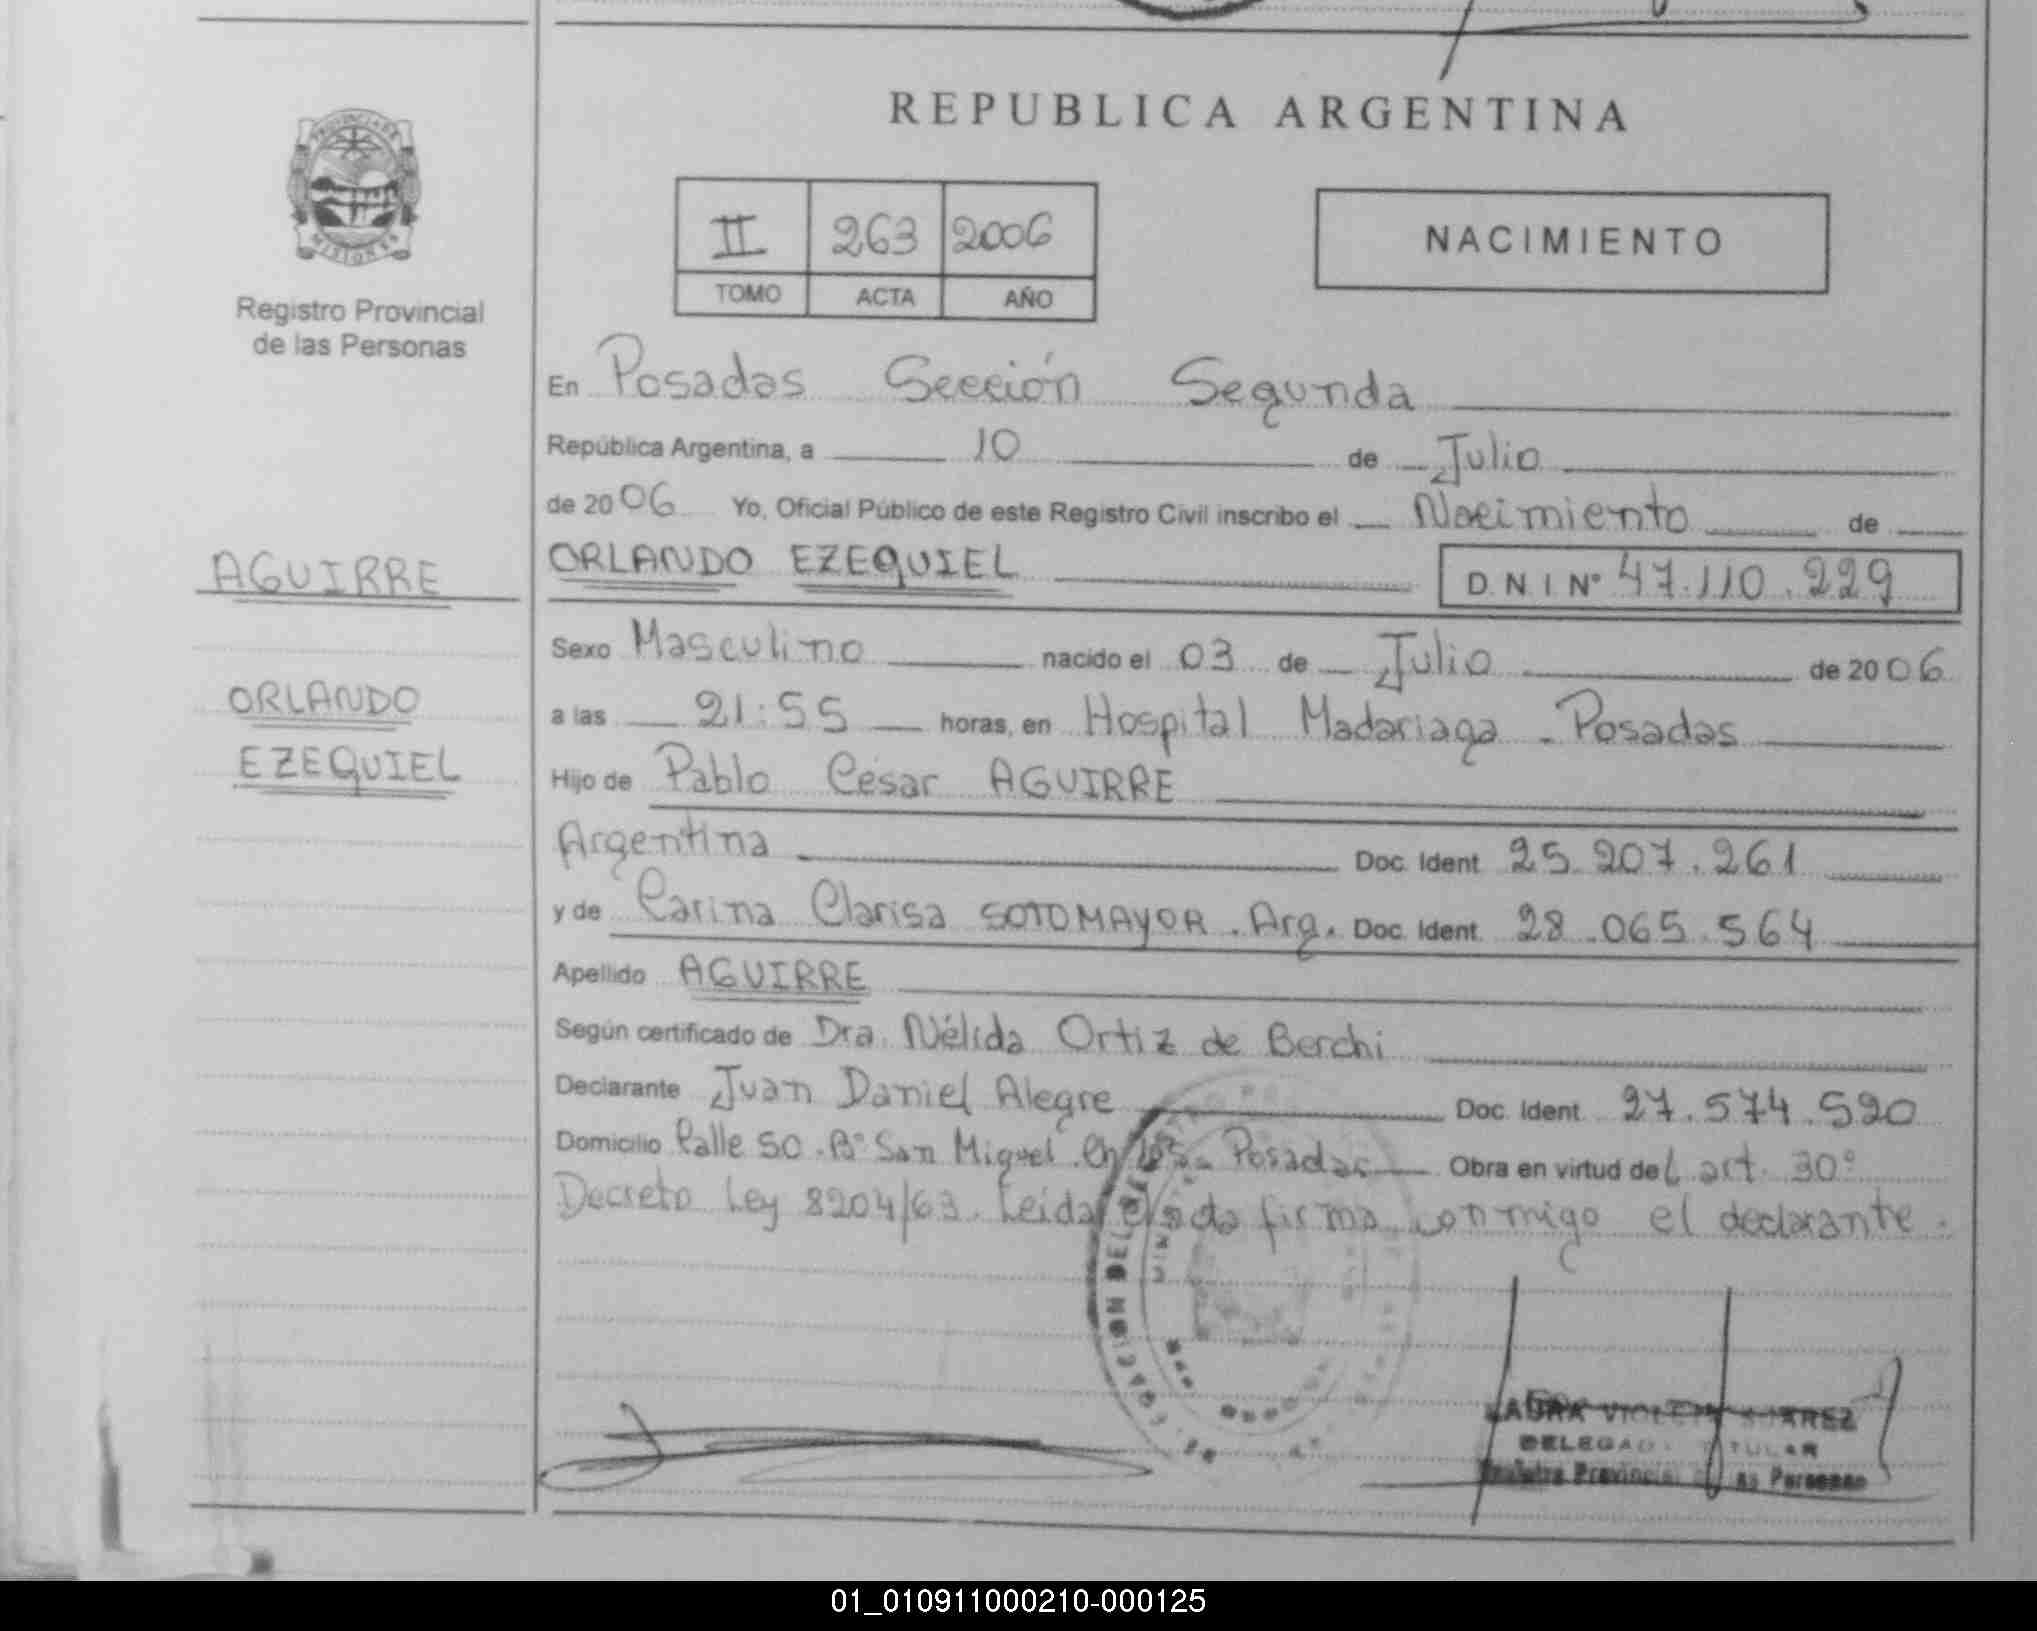 REPUBLICA ARGENTINA
PROVINCIA DE
MISIONES
Registro Provincial
de las Personas
II 263 2006
TOMO ACTA AÑO
NACIMIENTO
En Posadas Sección Segunda
República Argentina, a 10 de Julio
de 2006 Yo, Oficial Público de este Registro Civil inscribo el Nacimiento de
AGUIRRE
ORLANDO EZEQUIEL D.N.I Nº 47.110.229
ORLANDO
EZEQUIEL
Sexo Masculino nacido el 03 de Julio de 2006
a las 21:55 horas, en Hospital Madariaga - Posadas
Hijo de Pablo César AGUIRRE
Argentina Doc. Ident. 25.207.261
y de Carina Clarisa SOTOMAYOR. Arg. Doc. Ident. 28.065.564
Apellido AGUIRRE
Según certificado de Dra. Nélida Ortiz de Berchi
Declarante Juan Daniel Alegre Doc. Ident. 27.574.520
Domicilio Calle 50. Bº San Miguel Posadas Obra en virtud del art. 30º
Decreto Ley 8204/63. Leida el acta firma conmigo el declarante.
LAURA VIOLETA SUAREZ
DELEGADA TITULAR
Registro Provincial de las Personas
01_010911000210-000125